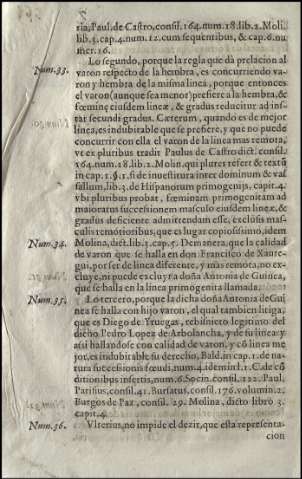 ria, Paul. de Castro, consil. 164. num. 18. lib. 2. Moli.
lib. 3. cap. 4. num. 12. cum sequentibus, & cap. 6. nu
mer. 16.
Num. 33. Lo segundo, porque la regla que dà prelacion al
varon respecto de la hembra, es concurriendo va-
ron y hembra de la misma linea, porque entonces
el varon (aunque sea menor) prefiere a la hembra, &
fœminę eiusdem lineæ, & gradus reducitur ad ins-
tar secundi gradus. Cæterum, quando es de mejor
linea, es indubitable que se prefiere, y que no puede
concurrir con ella el varon de la linea mas remota,
vt ex pluribus tradit Paulus de Castro dict. consil.
164. num. 18. lib. 2. Molin. qui plures refert & textũ
in cap. 1. § 1. si de inuestitura inter dominum & vas
sallum, lib. 3. de Hispanorum primogenijs, capit. 4.
vbi pluribus probat, fœminam primogenitam ad
maioratus successionem masculo eiusdem lineæ, &
gradus deficiente admittendam esse, exclusis mas-
culis remotioribus, que es lugar copiosissimo, idem
Num. 34. Molina, dict. lib. 3. cap. 5. De manera, que la calidad
de varon que se halla en don Francisco de Xaure-
gui, por ser de linea diferente, y mas remota, no ex-
cluye, ni puede excluyr a doña Antonia de Guinea,
que se halla en la linea primogenita llamada.
Num. 35. Lo tercero, porque la dicha doña Antonia de Gui
nea se halla con hijo varon, el qual tambien litiga,
que es Diego de Yruegas, rebisnieto legitimo del
dicho Pedro Lopez de Arbolancha, y de su linea: y
assi hallandose con calidad de varon, y cõ linea me
jor, es indubitable su derecho, Bald. in cap. 1. de na-
tura successionis fœudi, num. 4. idem in l. 1. C. de cõ
ditionibus insertis, num. 6. Socin. consil. 122. Paul.
Parisius, consil. 41. Bursatus, consil. 176. volumin. 2.
Burgos de Paz, consil. 29. Molina, dicto libro 3.
capit. 4.
Num. 36. Vlterius, no impide el dezir, que esta representa-
cion